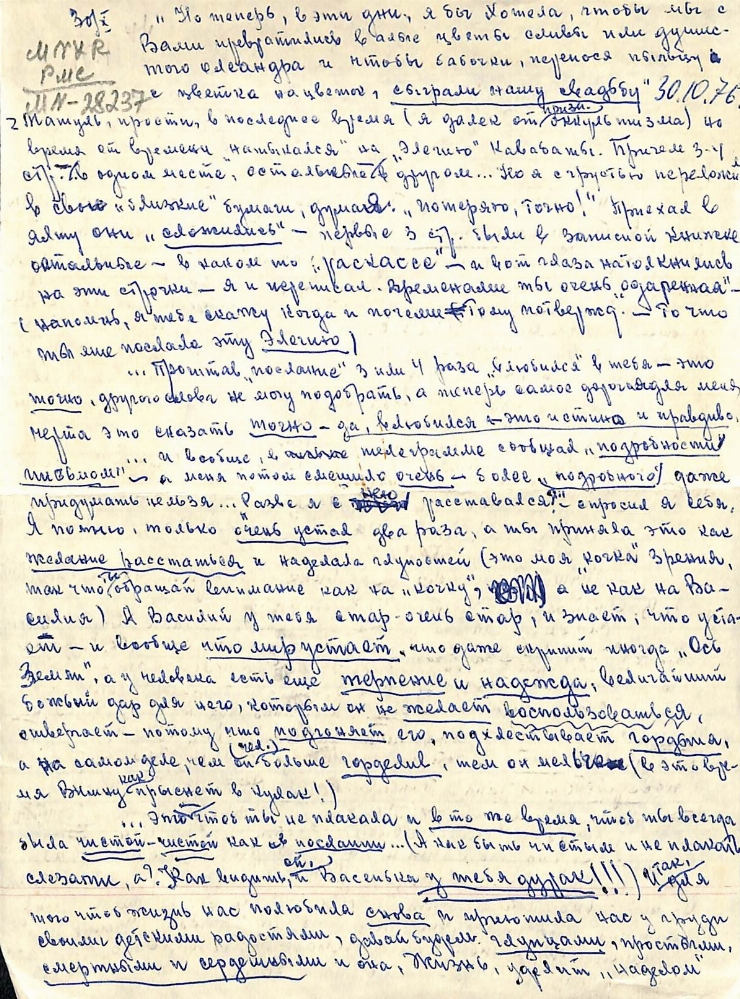 30/X "Но теперь, в эти дни, я бы хотела, чтобы мы с
MYKR Вами превратились в алые цветы сливы или душис-
РМС того олеандра и чтобы бабочки, перенося пыльцу
MN-28237 с цветка на цветок, сыграли нашу свадьбу" 30.10.76.
Тануль, прости, в последнее время (я далек от оккультизма) но
время от времени "натыкался" на "Элегию" Кавабаты. Причем 3-4
стр. в одном месте, остальные в другом... Но я с грустью переложил
в свои "близкие" бумаги, думая: "потеряю, точно!" Приехал в
Ялту они "сложились" – первые 3 стр. были в записной книжке
остальные – в каком то "раскассе" – и вот глаза натолкнулись
на эти строчки – я и переписал. Временами ты очень одаренная" –
(напомнь, я тебе скажу когда и почему тому потвержд." – То что
ты мне послала эту Элегию)
... Прочтав "послание" 3 или 4 раза "влюбился" в тебя – это
точно, другого слова не могу подобрать, а теперь самое дорогая для меня
черта это сказать точно – да, влюбился – это истина и правдиво.
... и вообще, в телеграмме сообщал "подробности
письмом" – а меня потом смешило очень – более "подробного" даже
придумать нельзя... Разве я с нею расставался?" – спросил я себя.
Я помню, только очень устал два раза, а ты приняла это как
желание расстаться и наделала глупостей (это моя "кочка" зрения,
так что ты обращай внимание как на "кочку", а не как на Ва-
силия) А Василий у тебя стар – очень стар, и знает, что уста-
ет – и вообще что мир устает, что даже скрипит иногда "Ось
Земли", а у человека есть еще терпение и надежда, величайший
божьий дар для него, которым он не желает воспользоваться,
отвергает – потому что подгоняет его, подхлестывает гордыня,
а на самом деле, чем он (чел.) больше горделив, тем он мельче (в это вре-
мя Вниму как прыснет в кулак!)
... Это чтоб ты не плакала и в то же время, чтоб ты всегда
была чистой – чистой как в послании... (А как быть чистым и не плакать
слезами, а? Как видить, Васенька у тебя дурак!!!) И так, для
того чтоб жизнь нас полюбила снова и приютила нас у груди
своими детскими радостями, давай будем глупцами, простыми,
смертными и сердешными и она, Жизнь, удрат "наделом"